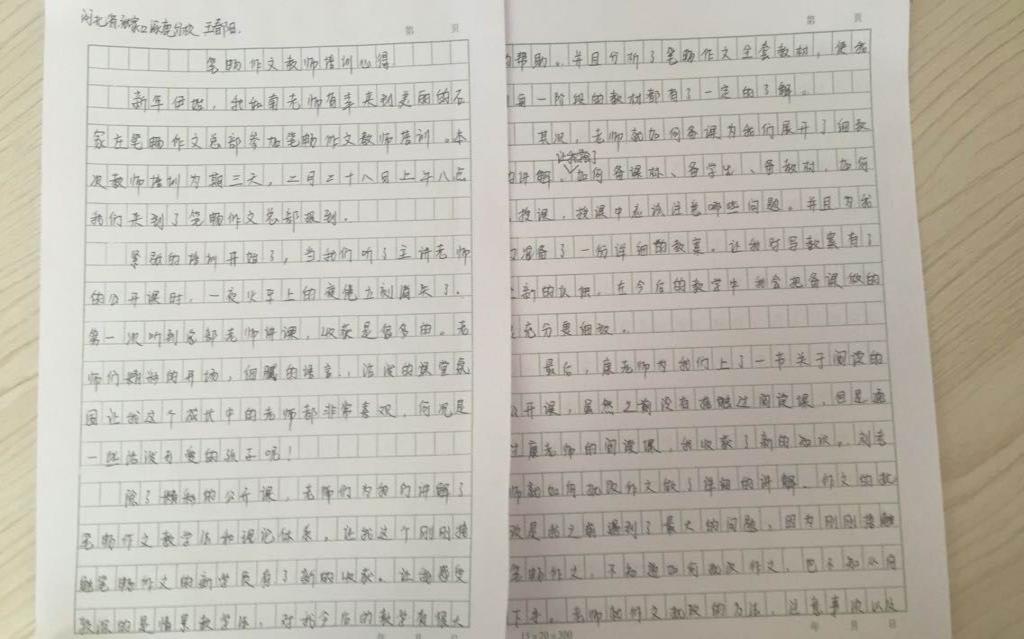 河北省张家口涿鹿分校 王春阳.
第 页
笔畅作文教师培训心得
新年伊始，我和南老师有幸来到美丽的石
家庄笔畅作文总部参加笔畅作文教师培训。本
次教师培训为期三天，二月二十八日上午八点
我们来到了笔畅作文总部报到.
紧张的培训开始了，当我们听了主讲老师
的公开课时，一夜火车上的疲倦立刻消失了.
第一次听到总部老师讲课，收获是很多的。老
师们精彩的开场，细腻的语言，活泼的课堂氛
围让我这个成长中的老师都非常喜欢，何况是
一些活泼可爱的孩子呢！
除了精彩的公开课，老师们为我们讲解了
笔畅作文教学法和理论体系，让我这个刚刚接
触笔畅作文的新学员有了新的收获。让我感受
较深的是情景教学法，对我今后的教学有很大
年 月 日
第 页
的帮助。并且分析了笔畅作文全套教材，使我
每一阶段的教材都有了一定的了解。
其次，老师就如何备课为我们展开了细致
的讲解，让我学了如何备课标、备学生、备教材，如何
授课，授课中应该注意哪些问题。并且为我
准备了一份详细的教案，让我对写教案有了
新的认识，在今后的教学中我会把备课做的
充分更细致。
最后，康老师为我们上了一节关于阅读的
公开课，虽然之前没有接触过阅读课，但是通
过康老师的阅读课，我收获了新的知识。刘老
师就如何批改作文做了详细的讲解、作文的批
改是我之前遇到了最大的问题，因为刚刚接触
笔畅作文，不知道如何批改作文，也不知从何
下手，老师把作文批改的方法，注意事项以及
15×20=300
年 月 日